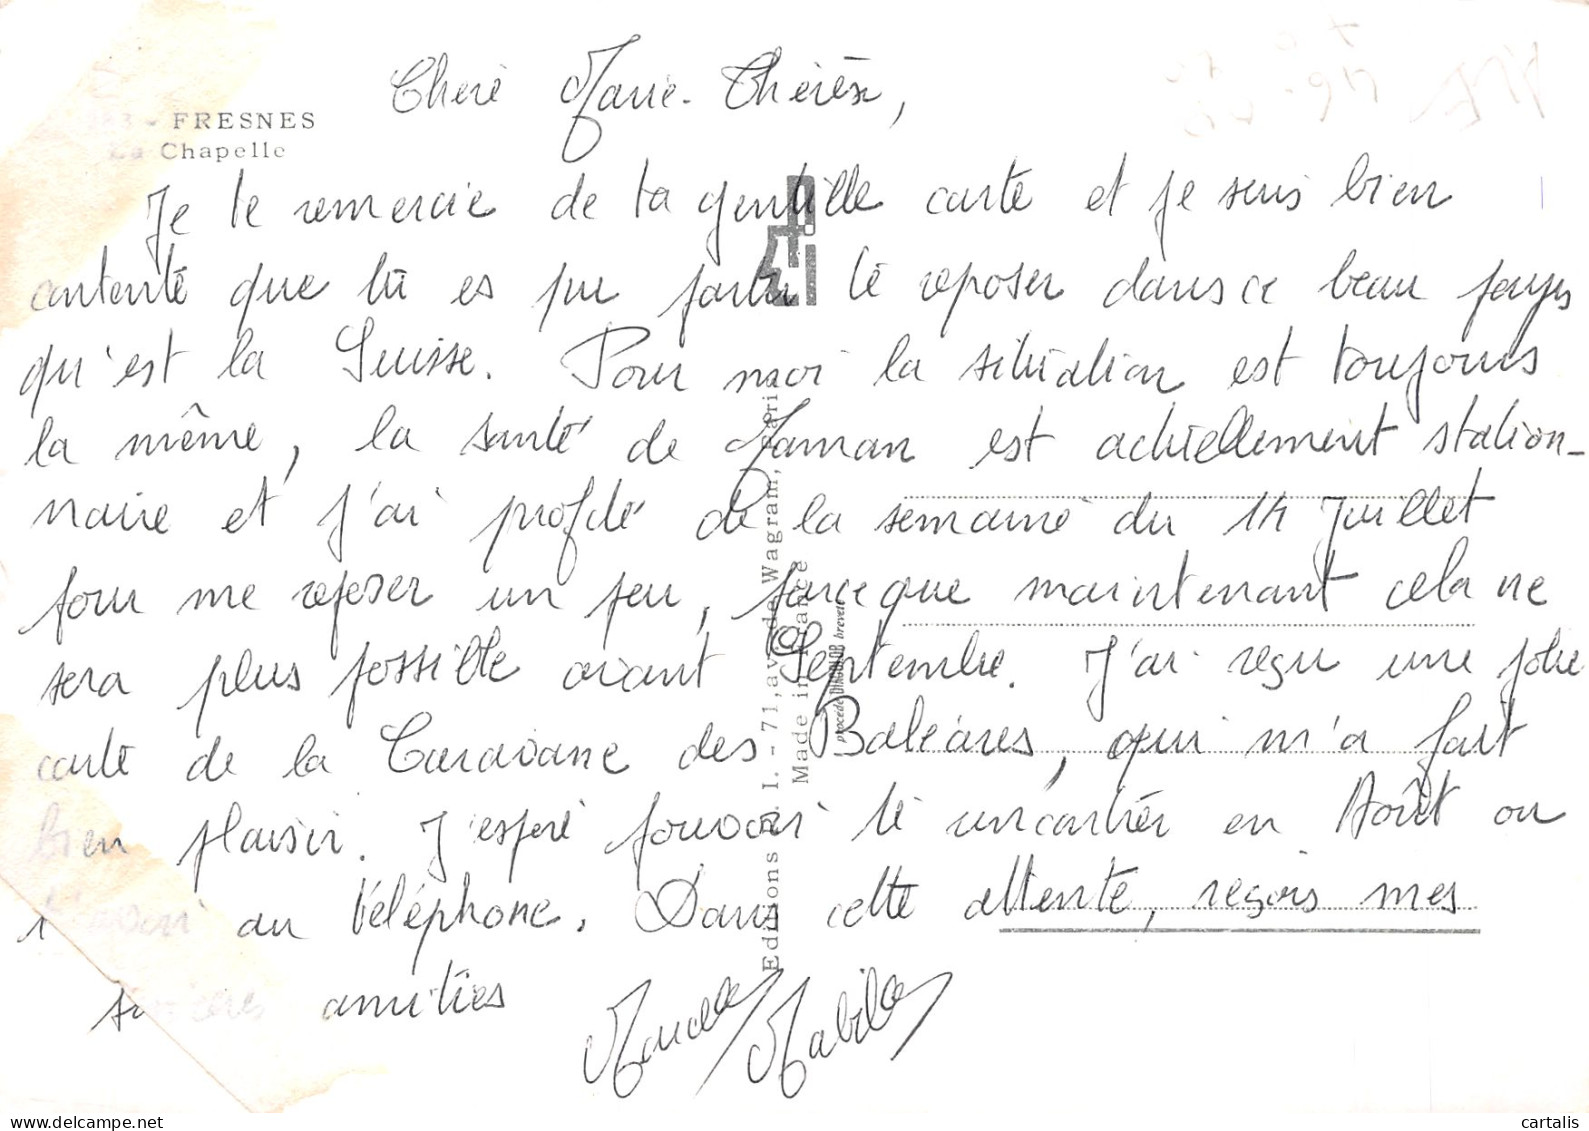 Chère Marie-Thérèse,
- FRESNES
La Chapelle
Je te remercie de ta gentille carte et je suis bien
contente que tu es pu partir te reposer dans ce beau pays
qu'est la Suisse. Pour moi la situation est toujours
la même, la santé de Maman est actuellement station-
naire et j'ai profité de la semaine du 14 Juillet
pour me reposer un peu, parceque maintenant cela ne
sera plus possible avant Septembre. J'ai reçu une jolie
carte de la Caravane des Baléares, qui m'a fait
bien plaisir. J'espère pouvoir te rencontrer en Août ou
au téléphone. Dans cette attente, reçois mes
sincères amitiés
Editions P. I. - 71, av. de Wagram, Paris
Made in France
procédé DIRCOLOR breveté
www.delcampe.net
cartalis